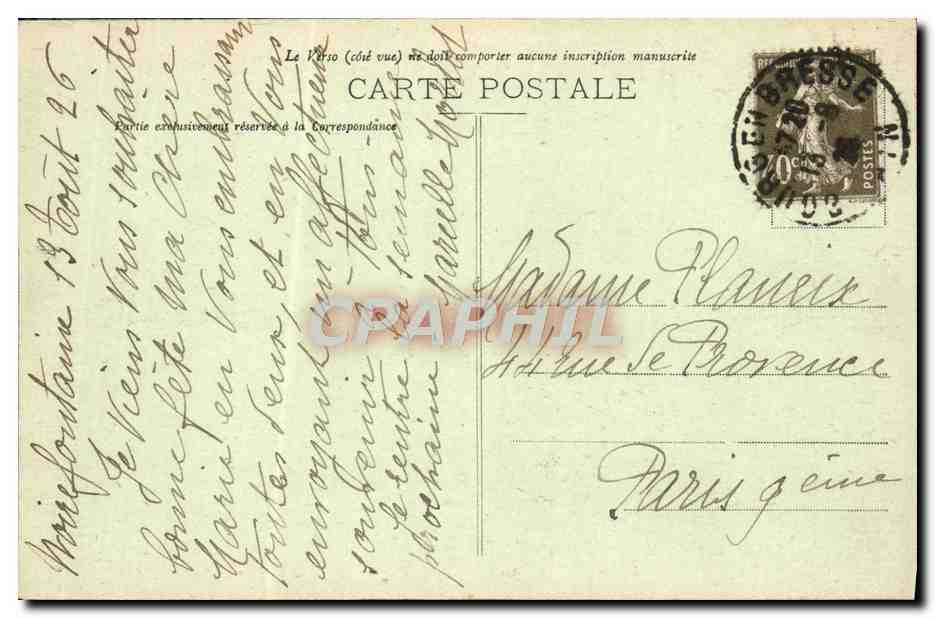 Le Verso (côté vue) ne doit comporter aucune inscription manuscrite
CARTE POSTALE
Partie exclusivement réservée à la Correspondance
Noirefontaine 13 Aout 26
Je viens vous souhaiter
bonne fête ma chère
Maria en vous embrassant
toutes deux, et en vous
envoyant un affectueux
souvenir à tous.
Je rentre la semaine
prochaine
Madame Planeix
44 rue de Provence
Paris 9ème
BOURG EN BRESSE
POSTES
CPAPHIL